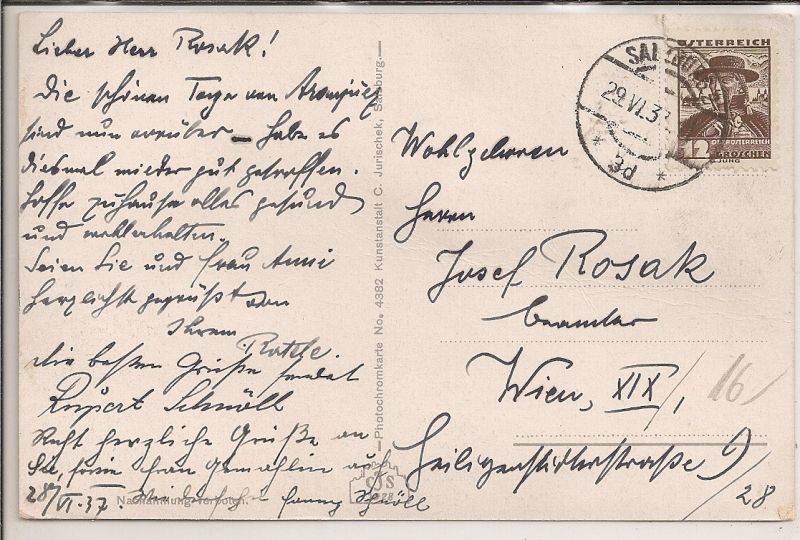 Lieber Herr Rosak!
Die schönen Tage von Aranjuez
sind nun vorüber – habe es
diesmal wieder gut getroffen.
Hoffe zuhause alles gesund
und wohlerhalten.
Seien Sie und Frau Anni
herzlichst gegrüßt von
Ihrem
die besten Grüße sendet
Rupert Schnöll
Recht herzliche Grüße an
Sie, sowie Frau Gemahlin auch
28/VI.37. Fanny Schnöll
Nachahmung verboten.
Photochromkarte No. 4382 Kunstanstalt C. Jurischek, Salzburg.
CJS
SALZBURG
29.VI.37
* 3d *
ÖSTERREICH
12
OBERÖSTERREICH
GROSCHEN
Wohlgeboren
Herrn
Josef Rosak
Beamter
Wien, XIX/,
16/
Heiligenstädterstraße
/28